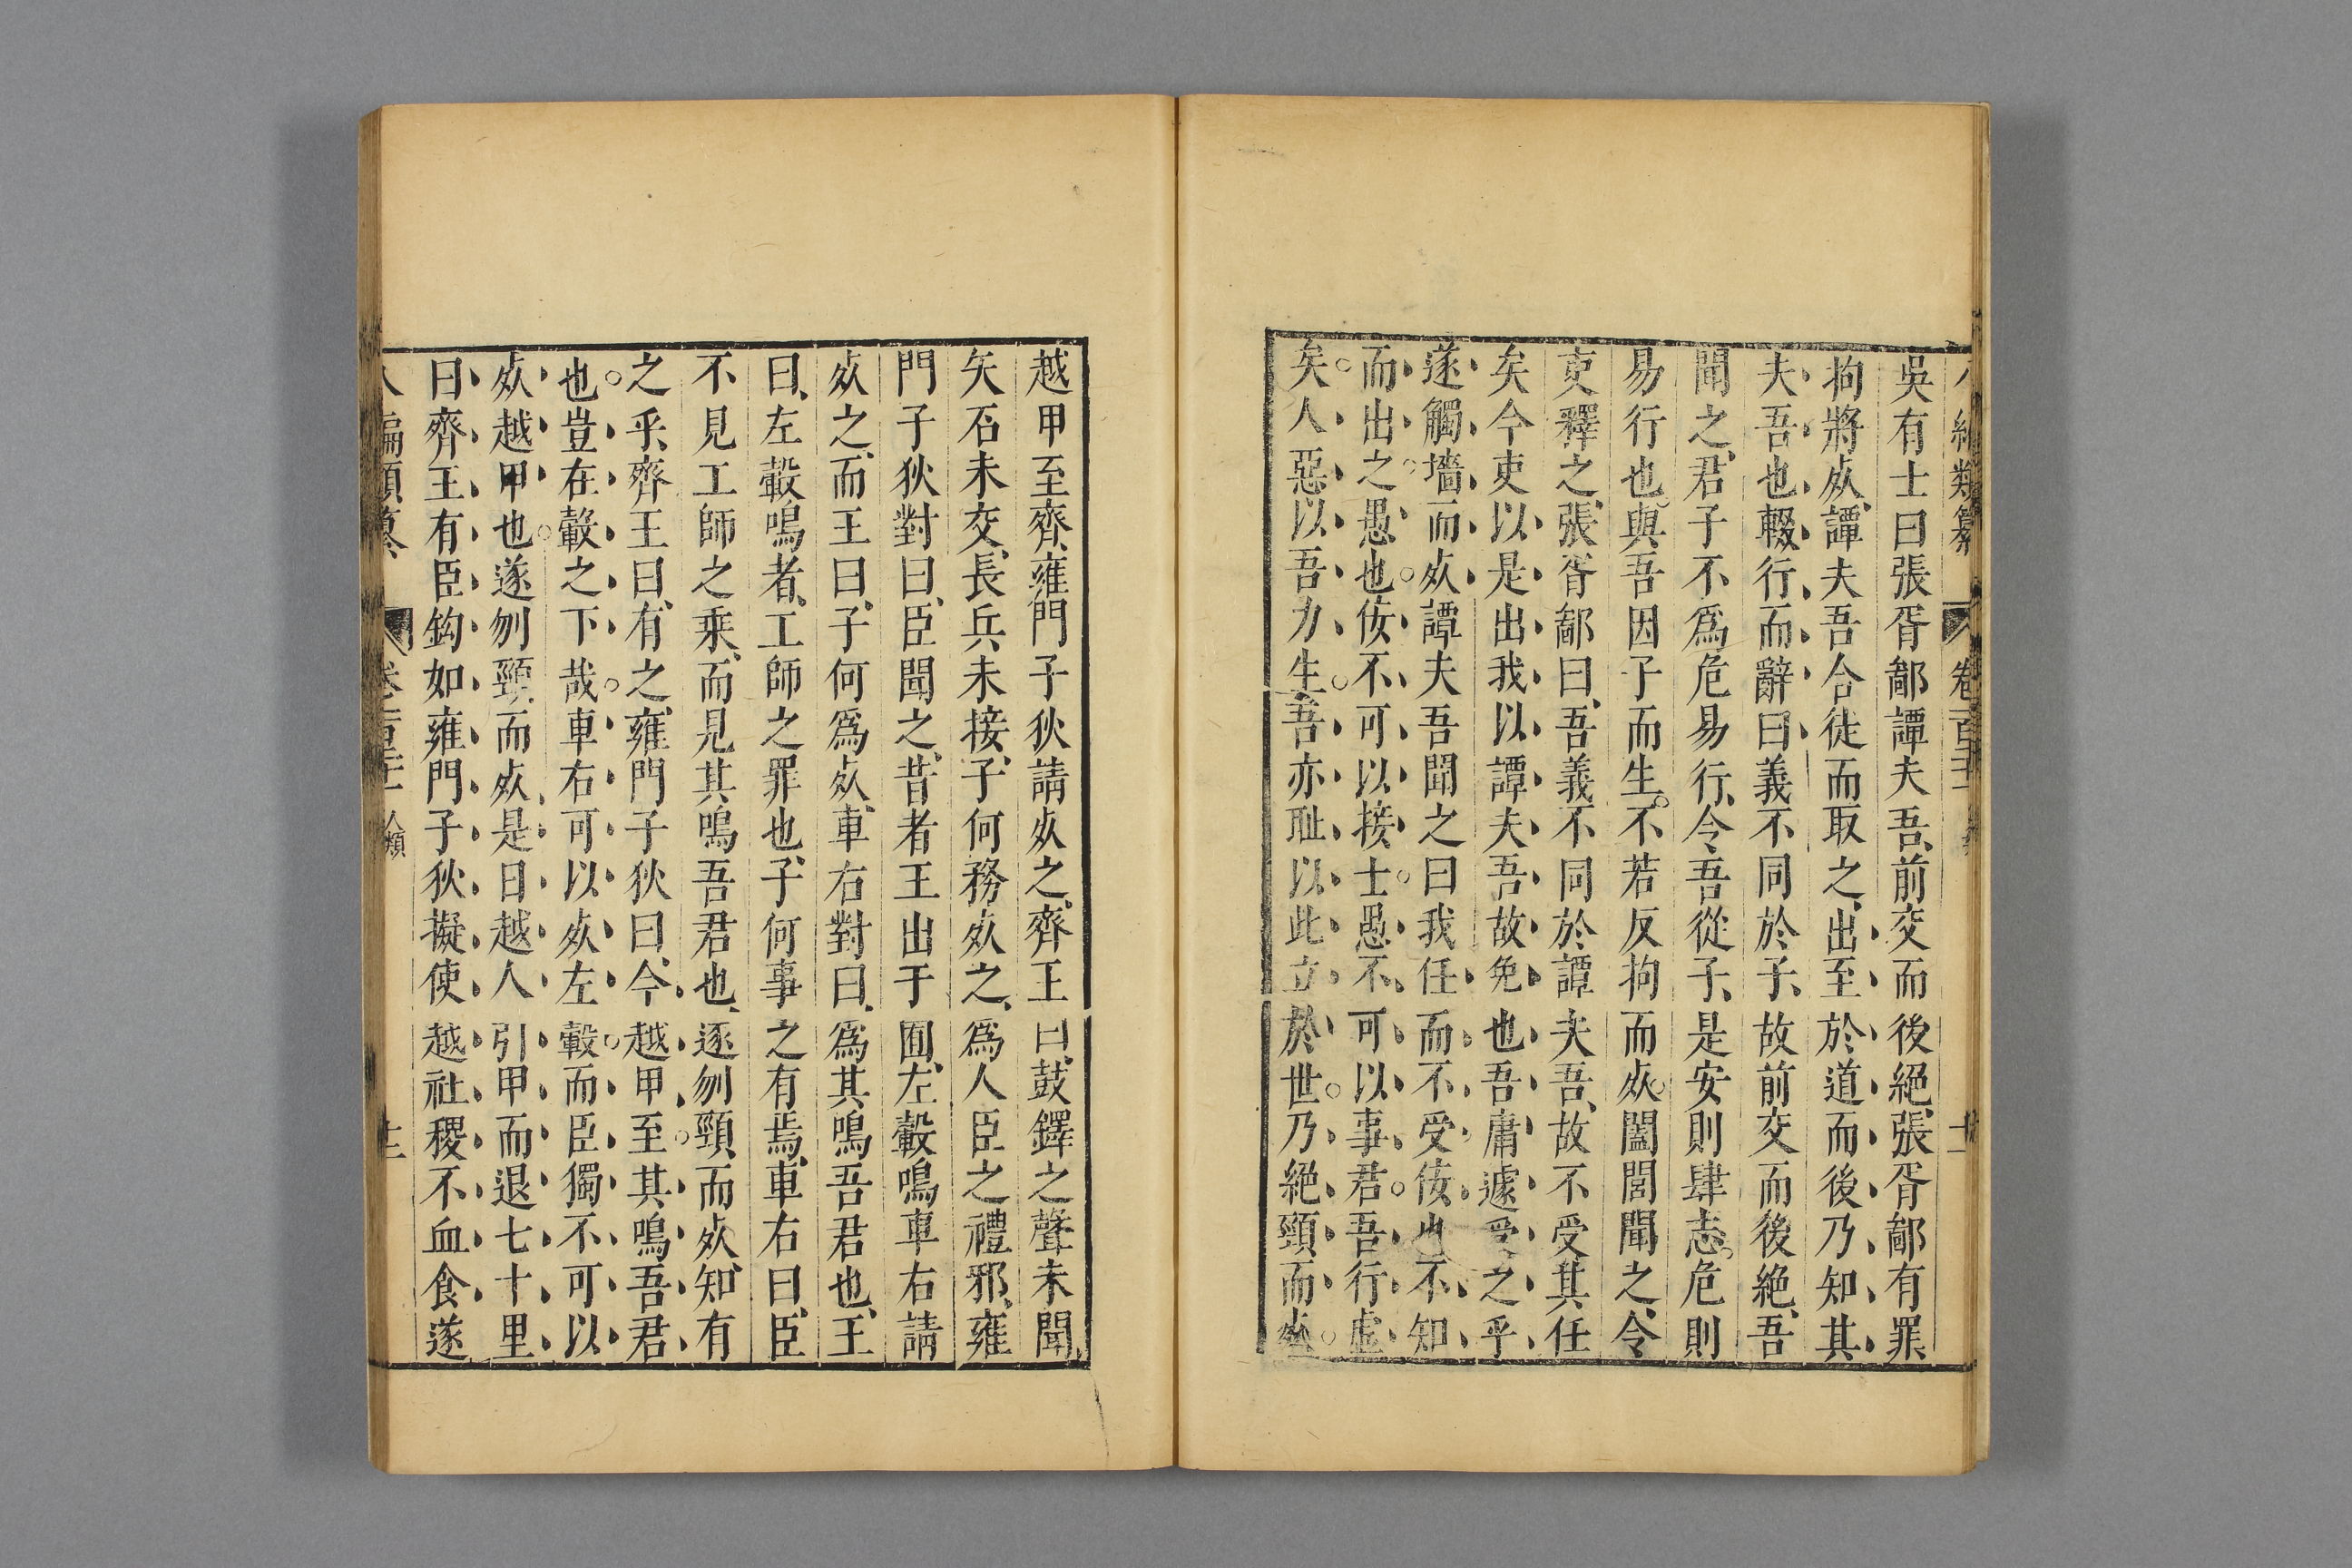 吳有士曰張胥鄗譚夫吾前交而後絕張胥鄗有罪
拘將㱙譚夫吾合徒而取之出至於道而後乃知其
夫吾也輟行而辭曰義不同於子故前交而後絕吾
聞之君子不爲危易行今吾從子是安則肆志危則
易行也與吾因子而生不若反拘而㱙闔閭聞之令
吏釋之張胥鄗曰吾義不同於譚夫吾故不受其任
矣今吏以是出我以譚夫吾故免也吾庸遽受之乎
遂觸墻而㱙譚夫吾聞之曰我任而不受佞也不知
而出之愚也佞不可以接士愚不可以事君吾行虛
矣人惡以吾力生吾亦耻以此立於世乃絕頸而㱙
越甲至齊雍門子狄請㱙之齊王曰鼓鐸之聲未聞
矢石未交長兵未接子何務㱙之爲人臣之禮邪雍
門子狄對曰臣聞之昔者王出于囿左轂鳴車右請
㱙之而王曰子何爲㱙車右對曰爲其鳴吾君也王
曰左轂鳴者工師之罪也子何事之有焉車右曰臣
不見工師之乘而見其鳴吾君也逐刎頸而㱙知有
之乎齊王曰有之雍門子狄曰今越甲至其鳴吾君
也豈在轂之下哉車右可以㱙左轂而臣獨不可以
㱙越甲也遂刎頸而㱙是日越人引甲而退七十里
曰齊王有臣鈎如雍門子狄擬使越社稷不血食遂